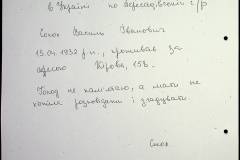 в Україні по
Сокол Василь Іванович
15.04.1932 р.н., проживав за
адресою Кірова, 158.
Голод не пам'ятаю, а мати не
хотіла розповідати і згадувати.